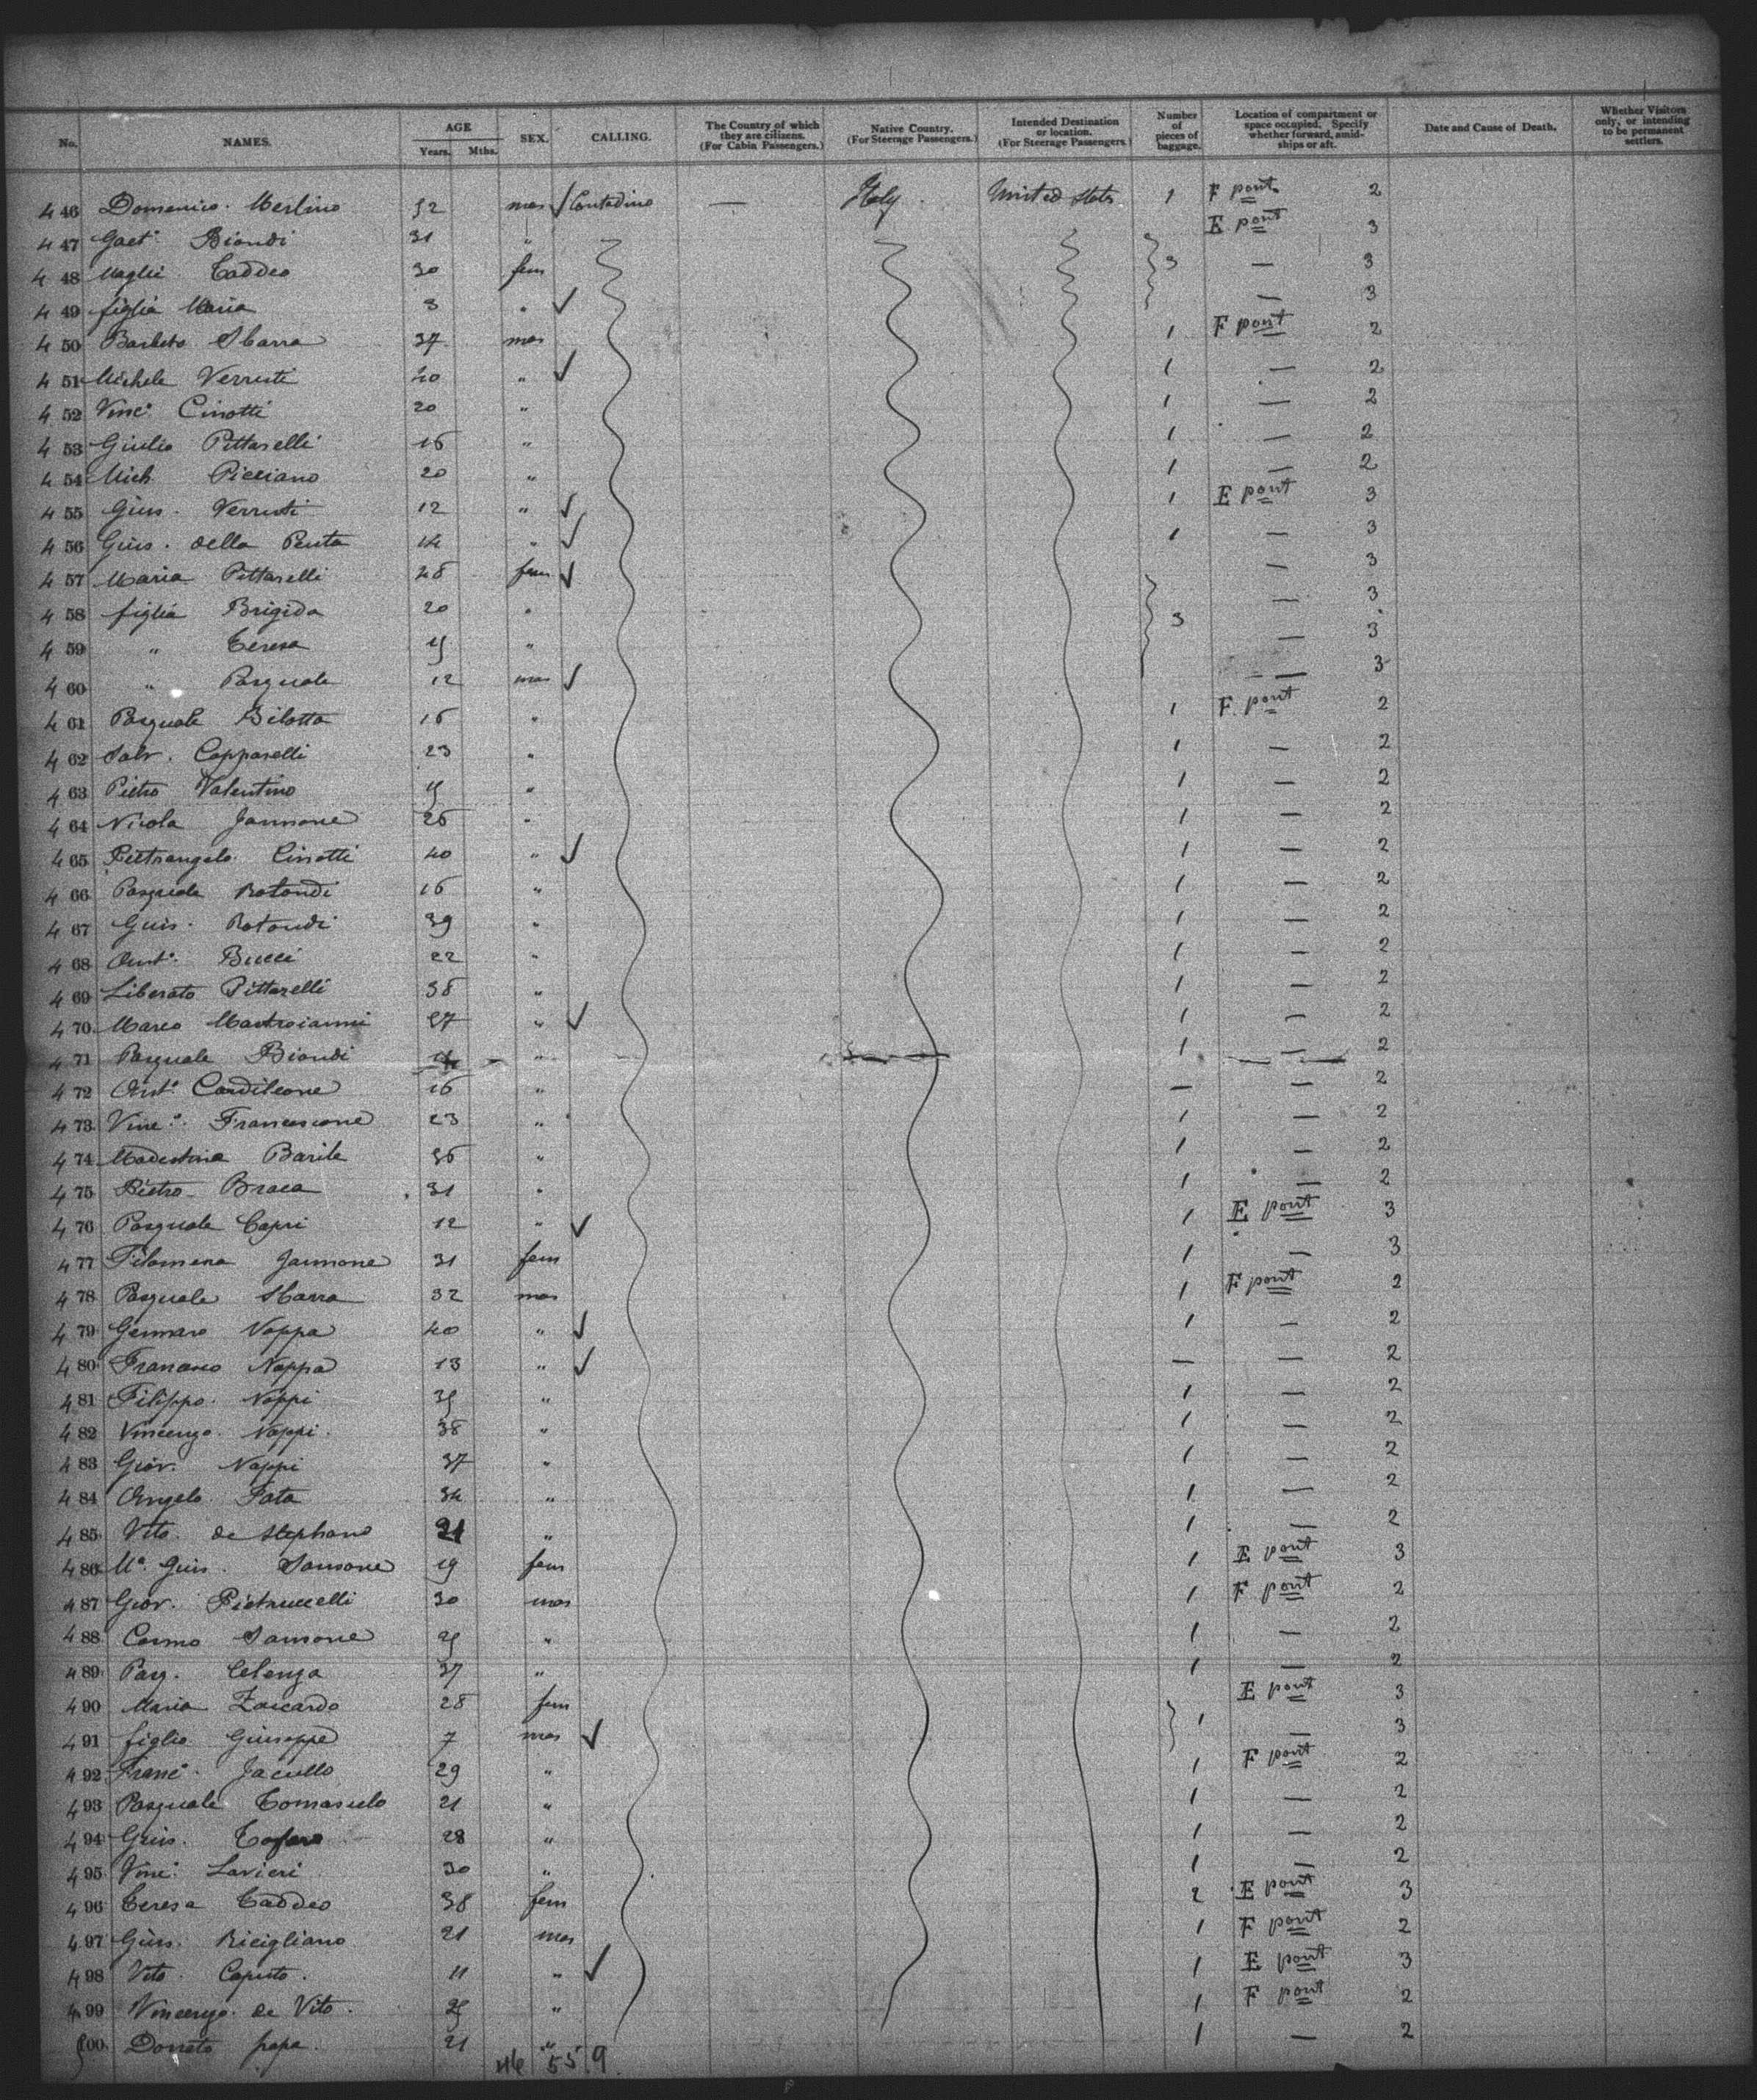 No. NAMES. AGE Years. Mths. SEX. CALLING. The Country of which they are citizens. (For Cabin Passengers.) Native Country. (For Steerage Passengers.) Intended Destination or location. (For Steerage Passengers.) Number of pieces of baggage. Location of compartment or space occupied. Specify whether forward, amidships or aft. Date and Cause of Death. Whether Visitors only, or intending to be permanent settlers.
4 46 Domenico Merlino 32 mas ✓ Contadino — Italy United States 1 F pont 2
4 47 Gaet° Biondi 31 " E pont 3
4 48 Moglie Taddeo 30 fem 3 — 3
4 49 figlia Maria 3 " ✓ — 3
4 50 Barbato Sbarra 37 mas 1 F pont 2
4 51 Michele Verruti 40 " ✓ 1 — 2
4 52 Vinc° Cinotti 20 " 1 — 2
4 53 Giulio Pittarelli 16 " 1 — 2
4 54 Mich. Picciano 20 " 1 — 2
4 55 Gius. Verruti 12 " ✓ 1 E pont 3
4 56 Gius. della Penta 14 " ✓ 1 — 3
4 57 Maria Pittarelli 48 fem ✓ — 3
4 58 figlia Brigida 20 " 3 — 3
4 59 " Teresa 19 " — 3
4 60 " Pasquale 12 mas ✓ — 3
4 61 Pasquale Bilotta 16 " 1 F pont 2
4 62 Salv. Capparelli 23 " 1 — 2
4 63 Pietro Valentino " 1 — 2
4 64 Nicola Jannone 26 " 1 — 2
4 65 Pietrangelo Cinotti 40 " ✓ 1 — 2
4 66 Pasquale Rotondi 16 " 1 — 2
4 67 Gius. Rotondi 39 " 1 — 2
4 68 Ant° Bucci 22 " 1 — 2
4 69 Liberato Pittarelli 38 " 1 — 2
4 70 Marco Mastroianni 37 " ✓ 1 — 2
4 71 Pasquale Biondi " 1 — 2
4 72 Ant° Cardileone 16 " — — 2
4 73 Vinc° Francescone 23 " 1 — 2
4 74 Modestino Barile 36 " 1 — 2
4 75 Pietro Braca 31 " 1 — 2
4 76 Pasquale Capri 12 " ✓ 1 E pont 3
4 77 Filomena Jannone 31 fem 1 — 3
4 78 Pasquale Sbarra 32 mas 1 F pont 2
4 79 Gennaro Nappa 40 " ✓ 1 — 2
4 80 Francesco Nappa 13 " ✓ — — 2
4 81 Filippo Nappi " 1 — 2
4 82 Vincenzo Nappi 38 " 1 — 2
4 83 Giov. Nappi 37 " 1 — 2
4 84 Angelo Fata 34 " 1 — 2
4 85 Vito de Stephano 21 " 1 — 2
4 86 Mª Gius. Sansone 19 fem 1 E pont 3
4 87 Giov. Pietruccelli 30 mas 1 F pont 2
4 88 Cosmo Sansone " 1 — 2
4 89 Pasq. Celenza 37 " 1 — 2
4 90 Maria Zaccardo 28 fem E pont 3
4 91 figlio Giuseppe 7 mas ✓ 1 — 3
4 92 Franc° Jacullo 29 " 1 F pont 2
4 93 Pasquale Tomasulo 21 " 1 — 2
4 94 Gius. Tofano 28 " 1 — 2
4 95 Vinc° Lavieri 30 " 1 — 2
4 96 Teresa Taddeo 38 fem 2 E pont 3
4 97 Gius. Ricigliano 21 mas 1 F pont 2
4 98 Vito Caputo 11 " ✓ 1 E pont 3
4 99 Vincenzo de Vito " 1 F pont 2
500 Donato papa 21 " 1 — 2
46 55 9